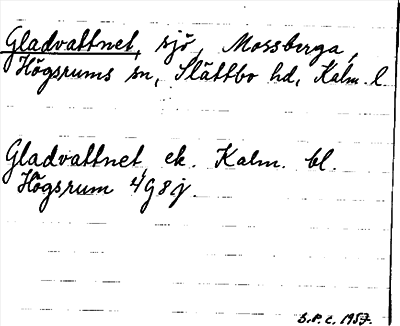 Gladvattnet, sjö, Mossberga,
Högsrums sn, Slättbo hd, Kalm. l.
Gladvattnet, ek. Kalm. bl.
Högsrum 4G8j.
S.P.C. 1957.